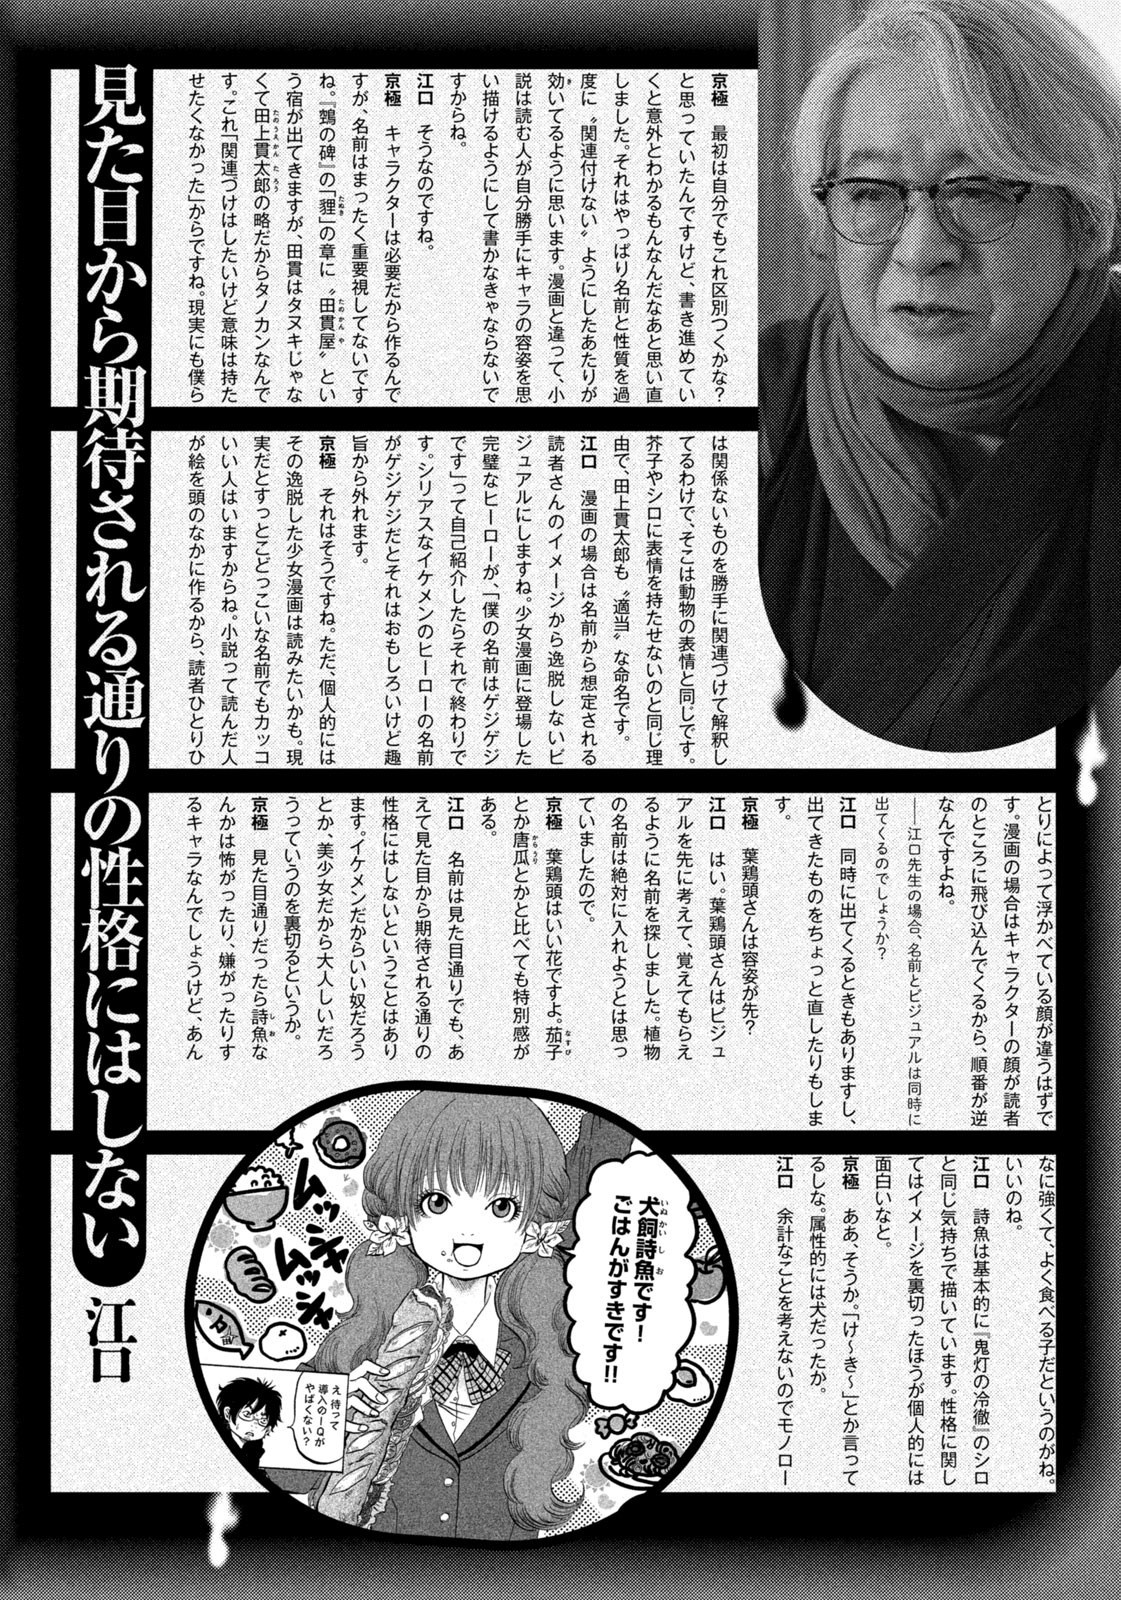 京極　最初は自分でもこれ区別つくかな？
と思っていたんですけど、書き進めてい
くと意外とわかるもんなんだなあと思い直
しました。それはやっぱり名前と性質を過
度に〝関連付けない〟ようにしたあたりが
効いてるように思います。漫画と違って、小
説は読む人が自分勝手にキャラの容姿を思
い描けるようにして書かなきゃならないで
すからね。
江口　そうなのですね。
京極　キャラクターは必要だから作るんで
すが、名前はまったく重要視してないです
ね。『鵼の碑』の「貍」の章に〝田貫屋〟とい
う宿が出てきますが、田貫はタヌキじゃな
くて田上貫太郎の略だからタノカンなんで
す。これ「関連づけはしたいけど意味は持た
せたくなかった」からですね。現実にも僕ら
は関係ないものを勝手に関連づけて解釈し
てるわけで、そこは動物の表情と同じです。
芥子やシロに表情を持たせないのと同じ理
由で、田上貫太郎も〝適当〟な命名です。
江口　漫画の場合は名前から想定される
読者さんのイメージから逸脱しないビ
ジュアルにしますね。少女漫画に登場した
完璧なヒーローが、「僕の名前はゲジゲジ
です」って自己紹介したらそれで終わりで
す。シリアスなイケメンのヒーローの名前
がゲジゲジだとそれはおもしろいけど趣
旨から外れます。
京極　それはそうですね。ただ、個人的には
その逸脱した少女漫画は読みたいかも。現
実だとすっとこどっこいな名前でもカッコ
いい人はいますからね。小説って読んだ人
が絵を頭のなかに作るから、読者ひとりひ
とりによって浮かべている顔が違うはずで
す。漫画の場合はキャラクターの顔が読者
のところに飛び込んでくるから、順番が逆
なんですよね。
――江口先生の場合、名前とビジュアルは同時に
出てくるのでしょうか？
江口　同時に出てくるときもありますし、
出てきたものをちょっと直したりもしま
す。
京極　葉鶏頭さんは容姿が先？
江口　はい。葉鶏頭さんはビジュ
アルを先に考えて、覚えてもらえ
るように名前を探しました。植物
の名前は絶対に入れようとは思っ
ていましたので。
京極　葉鶏頭はいい花ですよ。茄子
とか唐瓜とかと比べても特別感が
ある。
江口　名前は見た目通りでも、あ
えて見た目から期待される通りの
性格にはしないということはあり
ます。イケメンだからいい奴だろう
とか、美少女だから大人しいだろ
うっていうのを裏切るというか。
京極　見た目通りだったら詩魚な
んかは怖がったり、嫌がったりす
るキャラなんでしょうけど、あん
なに強くて、よく食べる子だというのがね。
いいのね。
江口　詩魚は基本的に『鬼灯の冷徹』のシロ
と同じ気持ちで描いています。性格に関し
てはイメージを裏切ったほうが個人的には
面白いなと。
京極　ああ、そうか。「け～き～」とか言って
るしな。属性的には犬だったか。
江口　余計なことを考えないのでモノロー
犬飼詩魚です！
ごはんがすきです!!
ムッシャ
ムッシャ
え、待って
導入のIQが
やばくない？
見た目から期待される通りの性格にはしない　江口